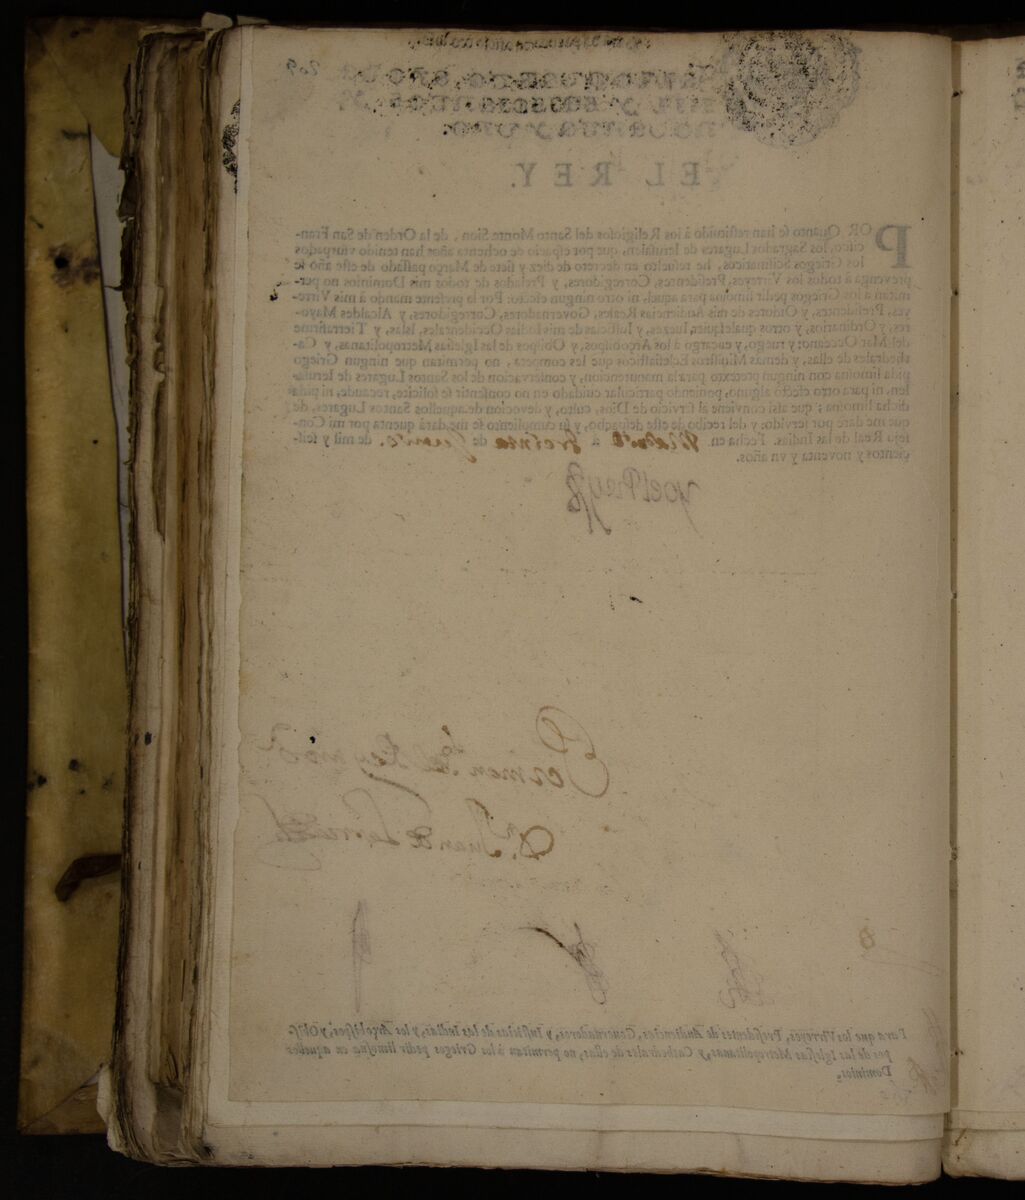 209
EL REY.
POR Quanto se han restituido à los Religiosos del Santo Monte Sion, de la Orden de San Fran-
cisco, los Sagrados Lugares de Ierusalen, que por espacio de ochenta años han tenido vsurpados
los Griegos Scismaticos, he resuelto en decreto de diez y siete de Março passado de este año se
prevenga à todos los Virreyes, Presidentes, Corregidores, y Prelados de todos mis Dominios no per-
mitan a los Griegos pedir limosna para aquel, ni otro ningun efecto: Por la presente mando à mis Virre-
yes, Presidentes, y Oidores de mis Audiencias Reales, Governadores, Corregidores, y Alcaldes Mayo-
res, y Ordinarios, y otros qualesquier Iuezes, y Iusticias de mis Indias Occidentales, Islas, y Tierrafirme
del Mar Occeano; y ruego, y encargo à los Arçobispos, y Obispos de las Iglesias Metropolitanas, y Ca-
thedrales de ellas, y demás Ministros Eclesiasticos que les competa, no permitan que ningun Griego
pida limosna con ningun pretexto para la manutencion, y conservacion de los Santos Lugares de Ierusa-
len, ni para otro efecto alguno, poniendo particular cuidado en no consentir se solicite, recaude, ni pida
dicha limosna; que assi conviene al servicio de Dios, culto, y devocion de aquellos Santos Lugares, de
que me daré por servido; y del recibo de este despacho, y su cumplimiento se me dará quenta por mi Con-
sejo Real de las Indias. Fecha en Madrid à treinta de Junio de mil y seis-
cientos y noventa y vn años.
yo el Rey
Por mando del Rey nro S.r
D. Juan de
Para que los Virreyes, Presidentes de Audiencias, Governadores, y Iusticias de las Indias, y los Arçobispos, y Obis-
pos de las Iglesias Metropolitanas, y Cathedrales de ellas, no permitan à los Griegos pedir limosna en aquellos
Dominios.